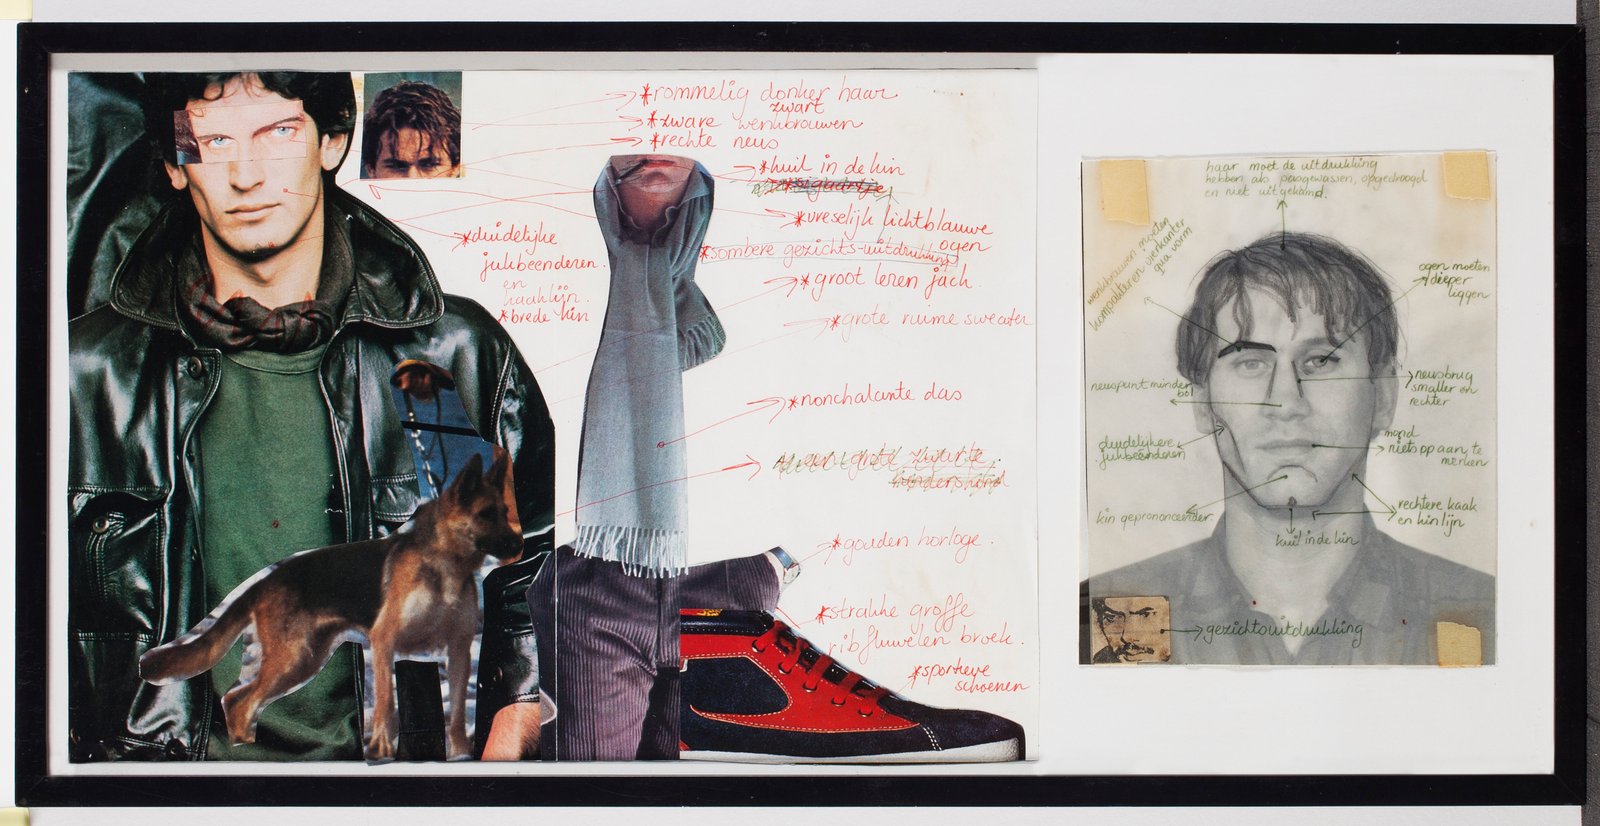 *rommelig donker haar
zwart
*zware wenkbrouwen
*rechte neus
*kuil in de kin
*sigaartje
*vreselijk lichtblauwe
ogen
*sombere gezichts-uitdrukking
*duidelijke
jukbeenderen.
en
kaaklijn.
*brede kin
*groot leren jack.
*grote ruime sweater
*nonchalante das
grote zwarte
*gouden horloge.
*strakke groffe
ribfluwelen broek.
*sportieve
schoenen
haar moet de uitdrukking
hebben als pasgewassen, opgedroogd
en niet uitgekamd.
wenkbrauwen moeten
kompakter en vierkanter
qua vorm
ogen moeten
dieper
liggen
neuspunt minder
bol
neusbrug
smaller en
rechter
duidelijkere
jukbeenderen
mond
niets op aan te
merken
kin geprononceerder.
rechtere kaak
en kin lijn
kuil in de kin
gezichtsuitdrukking